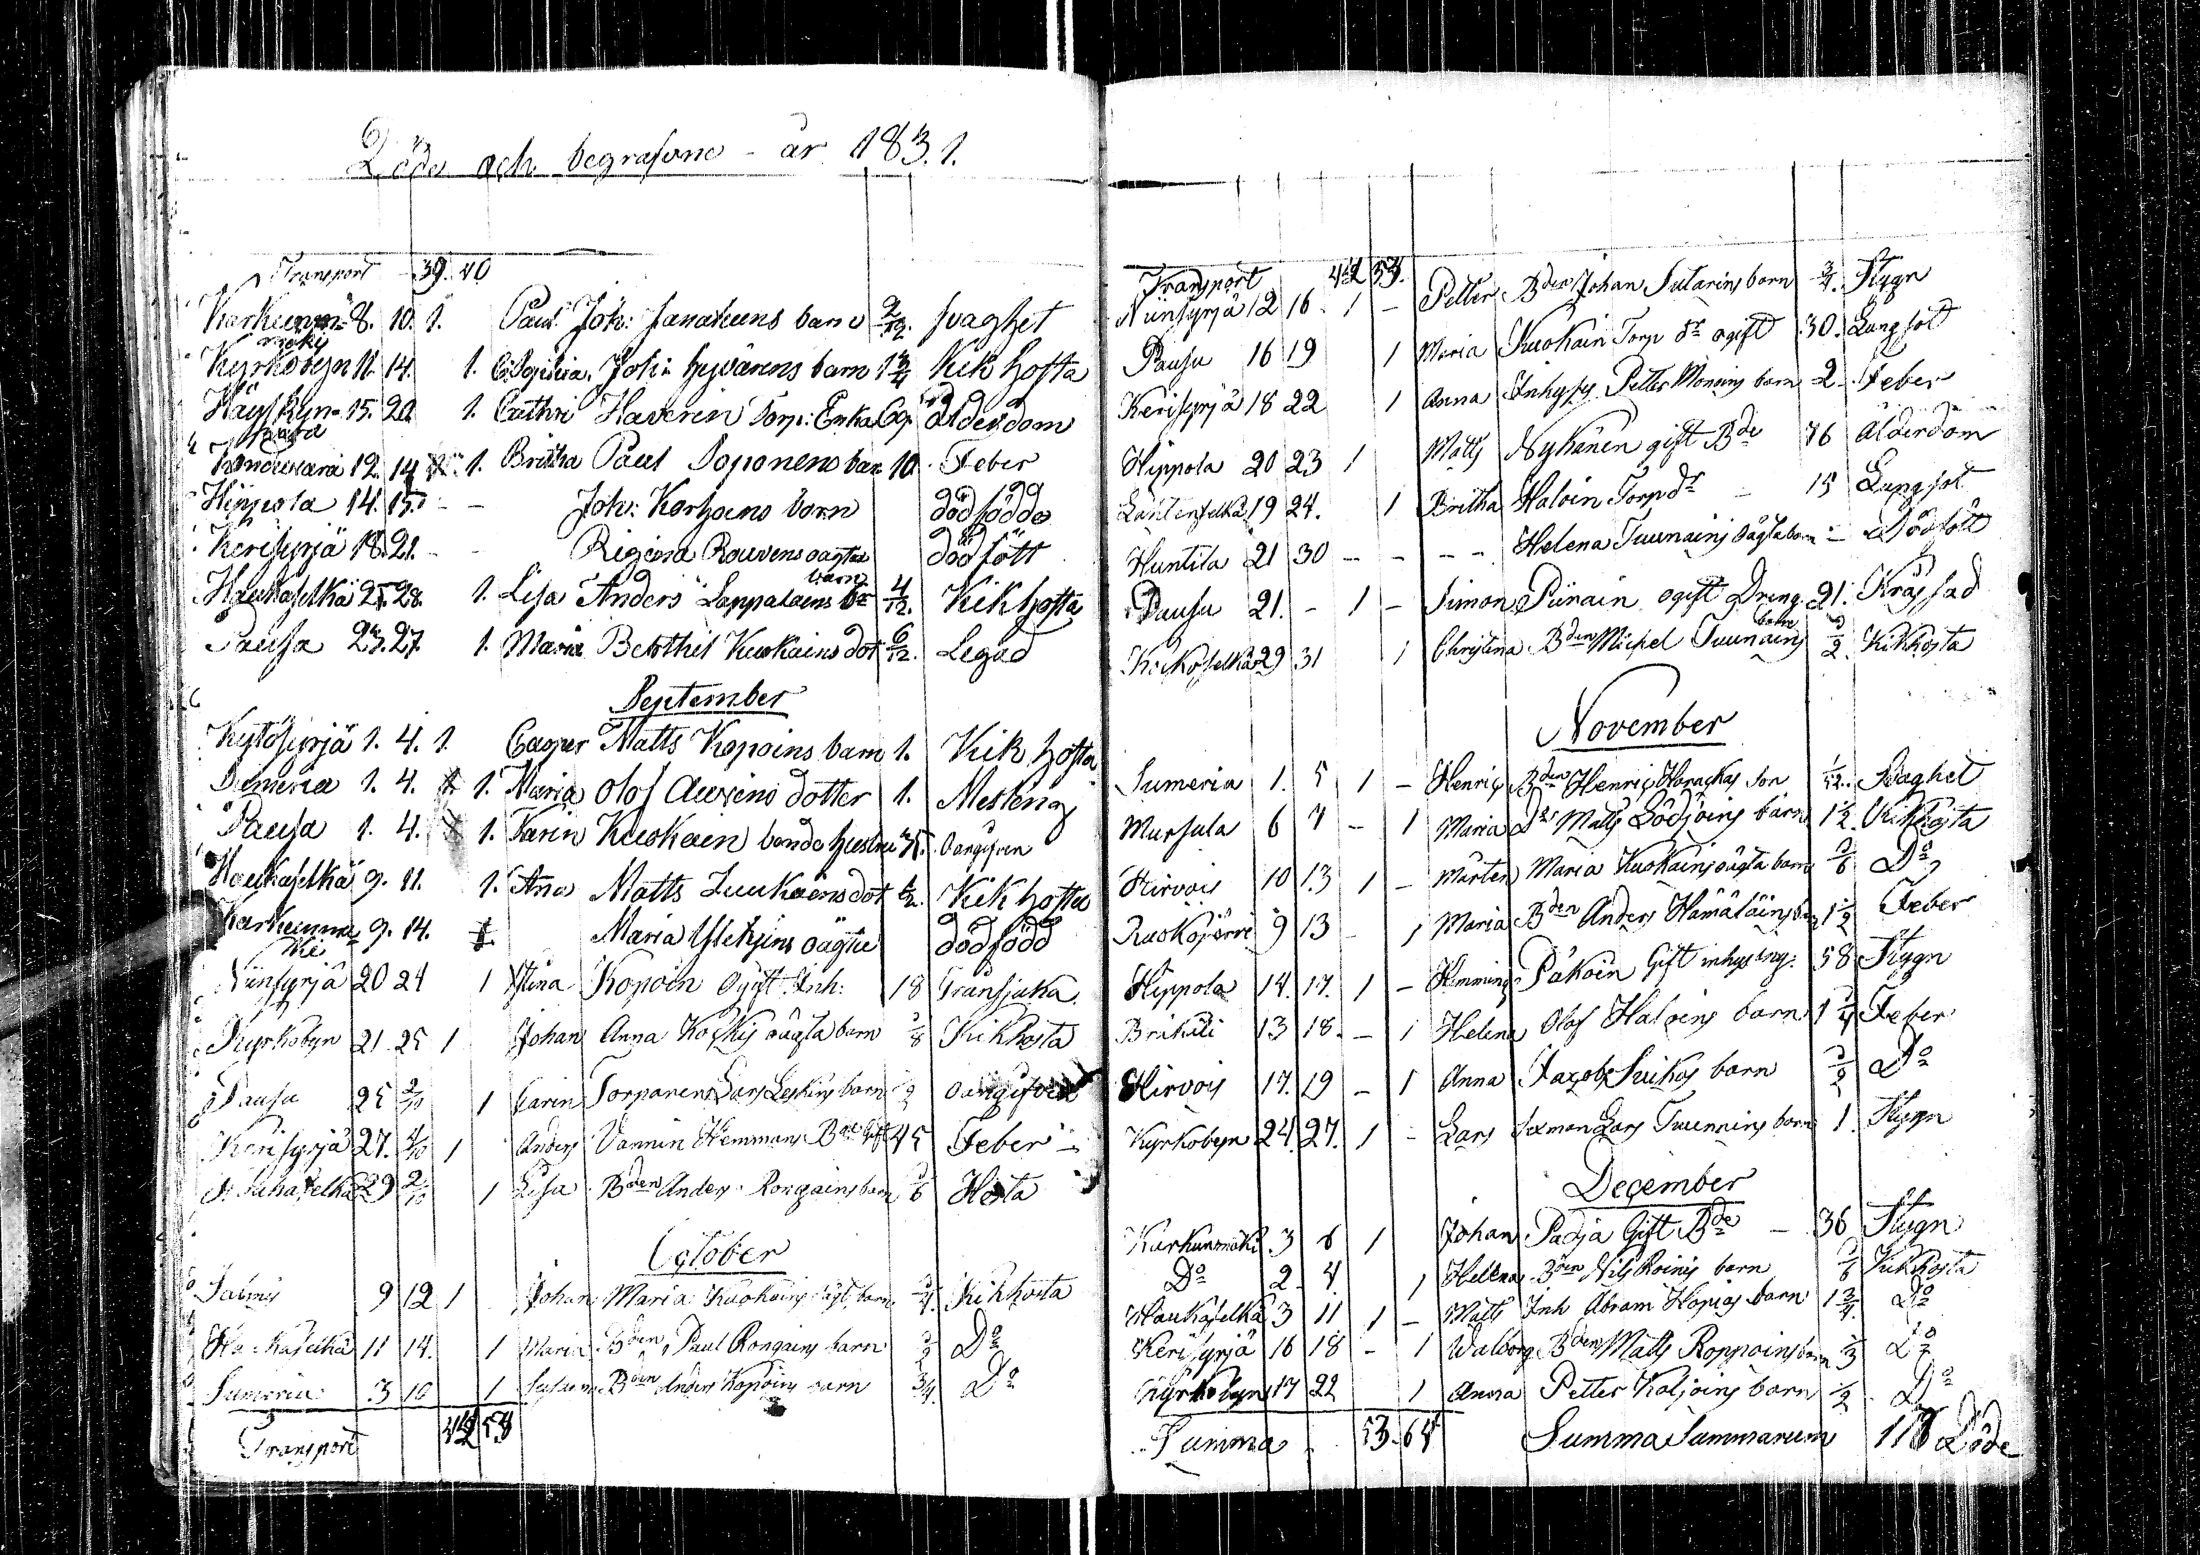 Döde och begrafvne - år 1831.
Transport 39. 40
Karkunmäki 8. 10. 1. Paul Joh: Janatuens barn 2/12. svaghet
Kyrkobyn 11. 14. 1. Joh: Hyvärens barn 1 3/4 Kik hosta
15. 20 1. Cathri Haverin Torp: Enka 69. ålderdom
12. 14 1. Britha Paul Soponens barn 10. Feber
Hippola 14. 15. - - Joh: Korhoens barn dödfödde
Kerisyrjä 18. 21. - - Rouvens oägta dödfött
Haukaselkä 25. 28. 1. Lisa Anders Lappalaens barn 4/12. Kikhosta
Pausa 23. 27. 1. Maria Kuokains dot 6/12. Legad
September
Kytösyrjä 1. 4. 1. Casper Matts Kopoins barn 1. Kik hosta
Sumeria 1. 4. 1. Maria Olof Auviens dotter 1. Mesleng
Pausa 1. 4. 1. Karin Kuokain bonde hustru 75. Oangifven
Haukaselkä 9. 11. 1. Ana Matts Luukains dot 1/2. Kik hosta
Karkunmäki 9. 14. Maria oägta dödfödd
Niinsyrjä 20 24 1 Stina Kopoin Ogift Inh: 18 Transjuka
Kyrkobyn 21 25 1 Johan Anna Koskis oägta barn Kikhosta
Pausa 25 2/10 1 Carin Torparens Lars barn oangifven
Kerisyrjä 27. 4/10 1 Anders Vannin Hemmans Bde gift 45 Feber
Haukaselkä 29 2/10 1 Lisa Bden Anders Rongains barn Hosta
October
Salmis 9 12 1 Johan Maria Kuokains oägt. barn 3/4. Kikhosta
Haukaselkä 11 14. 1 Maria Bden Paul Rongains barn Do
Sumeria 3 10 1 Bden Anders Kopoins barn 3/4. Do
Transport 42 53
Transport 42 53.
Niinsyrjä 12 16. 1 - Petter Bden Johan Sutarins barn 3/4. Stygn
Pausa 16 19 1 Maria Kuokain Torp dr ogift 30. Lungsot
Kerisyrjä 18 22 1 Anna Inhyses Petter Monins barn 2 Feber
Hippola 20 23 1 Matts Nykänen gift Bde 76 Ålderdom
Lautenselkä 19 24. 1 Britha Haloin Torp dr - 15 Lungsot
Huntila 21 30 - - - - Helena Tuunains oägta barn - Dödfött
Pausa 21. - 1 - Simon Piirain ogift Dreng 21. Krossad
Kockoselkä 29 31 1 Christina Bden Michel Tuunains barn 1/2. Kikhosta
November
Sumeria 1. 5 1 - Henric Bden Henric Horackas son 1/12. Svaghet
Mursula 6 7 - 1 Maria Do Matts Lödjöins barn 1 1/2. Kikhosta
Hirvois 10 13 1 - Mårten Maria Kuokains oägta barn Do
Ruokojärvi 9 13 - 1 Maria Bden Anders Hämäläins barn 1 1/2 Feber
Hippola 14. 17. 1 - Hemming Päkoin Gift inhysing: 58 Stygn
13 18 - 1 Helena Olof Haloins barn 1 1/4 Feber
Hirvois 17. 19 - 1 Anna Jacob Suikos barn 1/2 Do
Kyrkobyn 24. 27. 1 - Lars Sexman Lars Tuunains barn 1. Stygn
December
Karkunmäki 3 6 1 Johan Padja Gift Bde - 36 Stygn
Do 2 4 1 Helena Bden Nils Roinis barn Kikhosta
Haukaselkä 3 11 1 - Matts Inh Abram Hopias barn 1 3/4. Do
Kerisyrjä 16 18 - 1 Walborg Bden Matts Roppoins barn 1/3 Do
Kyrkobyn 17 22 1 Anna Petter Koljoins barn 1/2 Do
Summa 53. 64 Summa Summarum 118 Döde